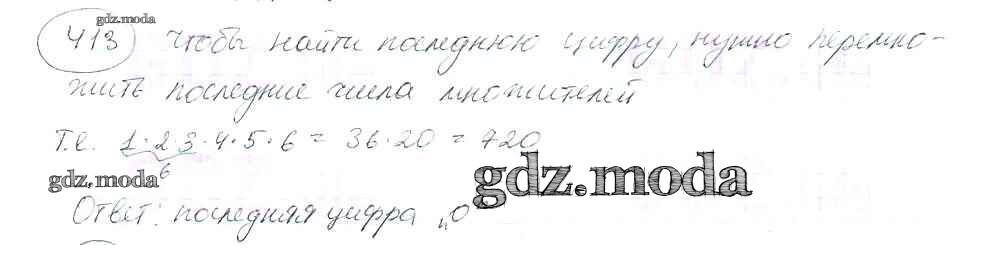 gdz.moda
413 Чтобы найти последнюю цифру, нужно перемно-
жить последние числа множителей
Т.е. 1·2·3·4·5·6 = 36·20 = 720
6
gdz.moda
gdz.moda
Ответ: последняя цифра „0"